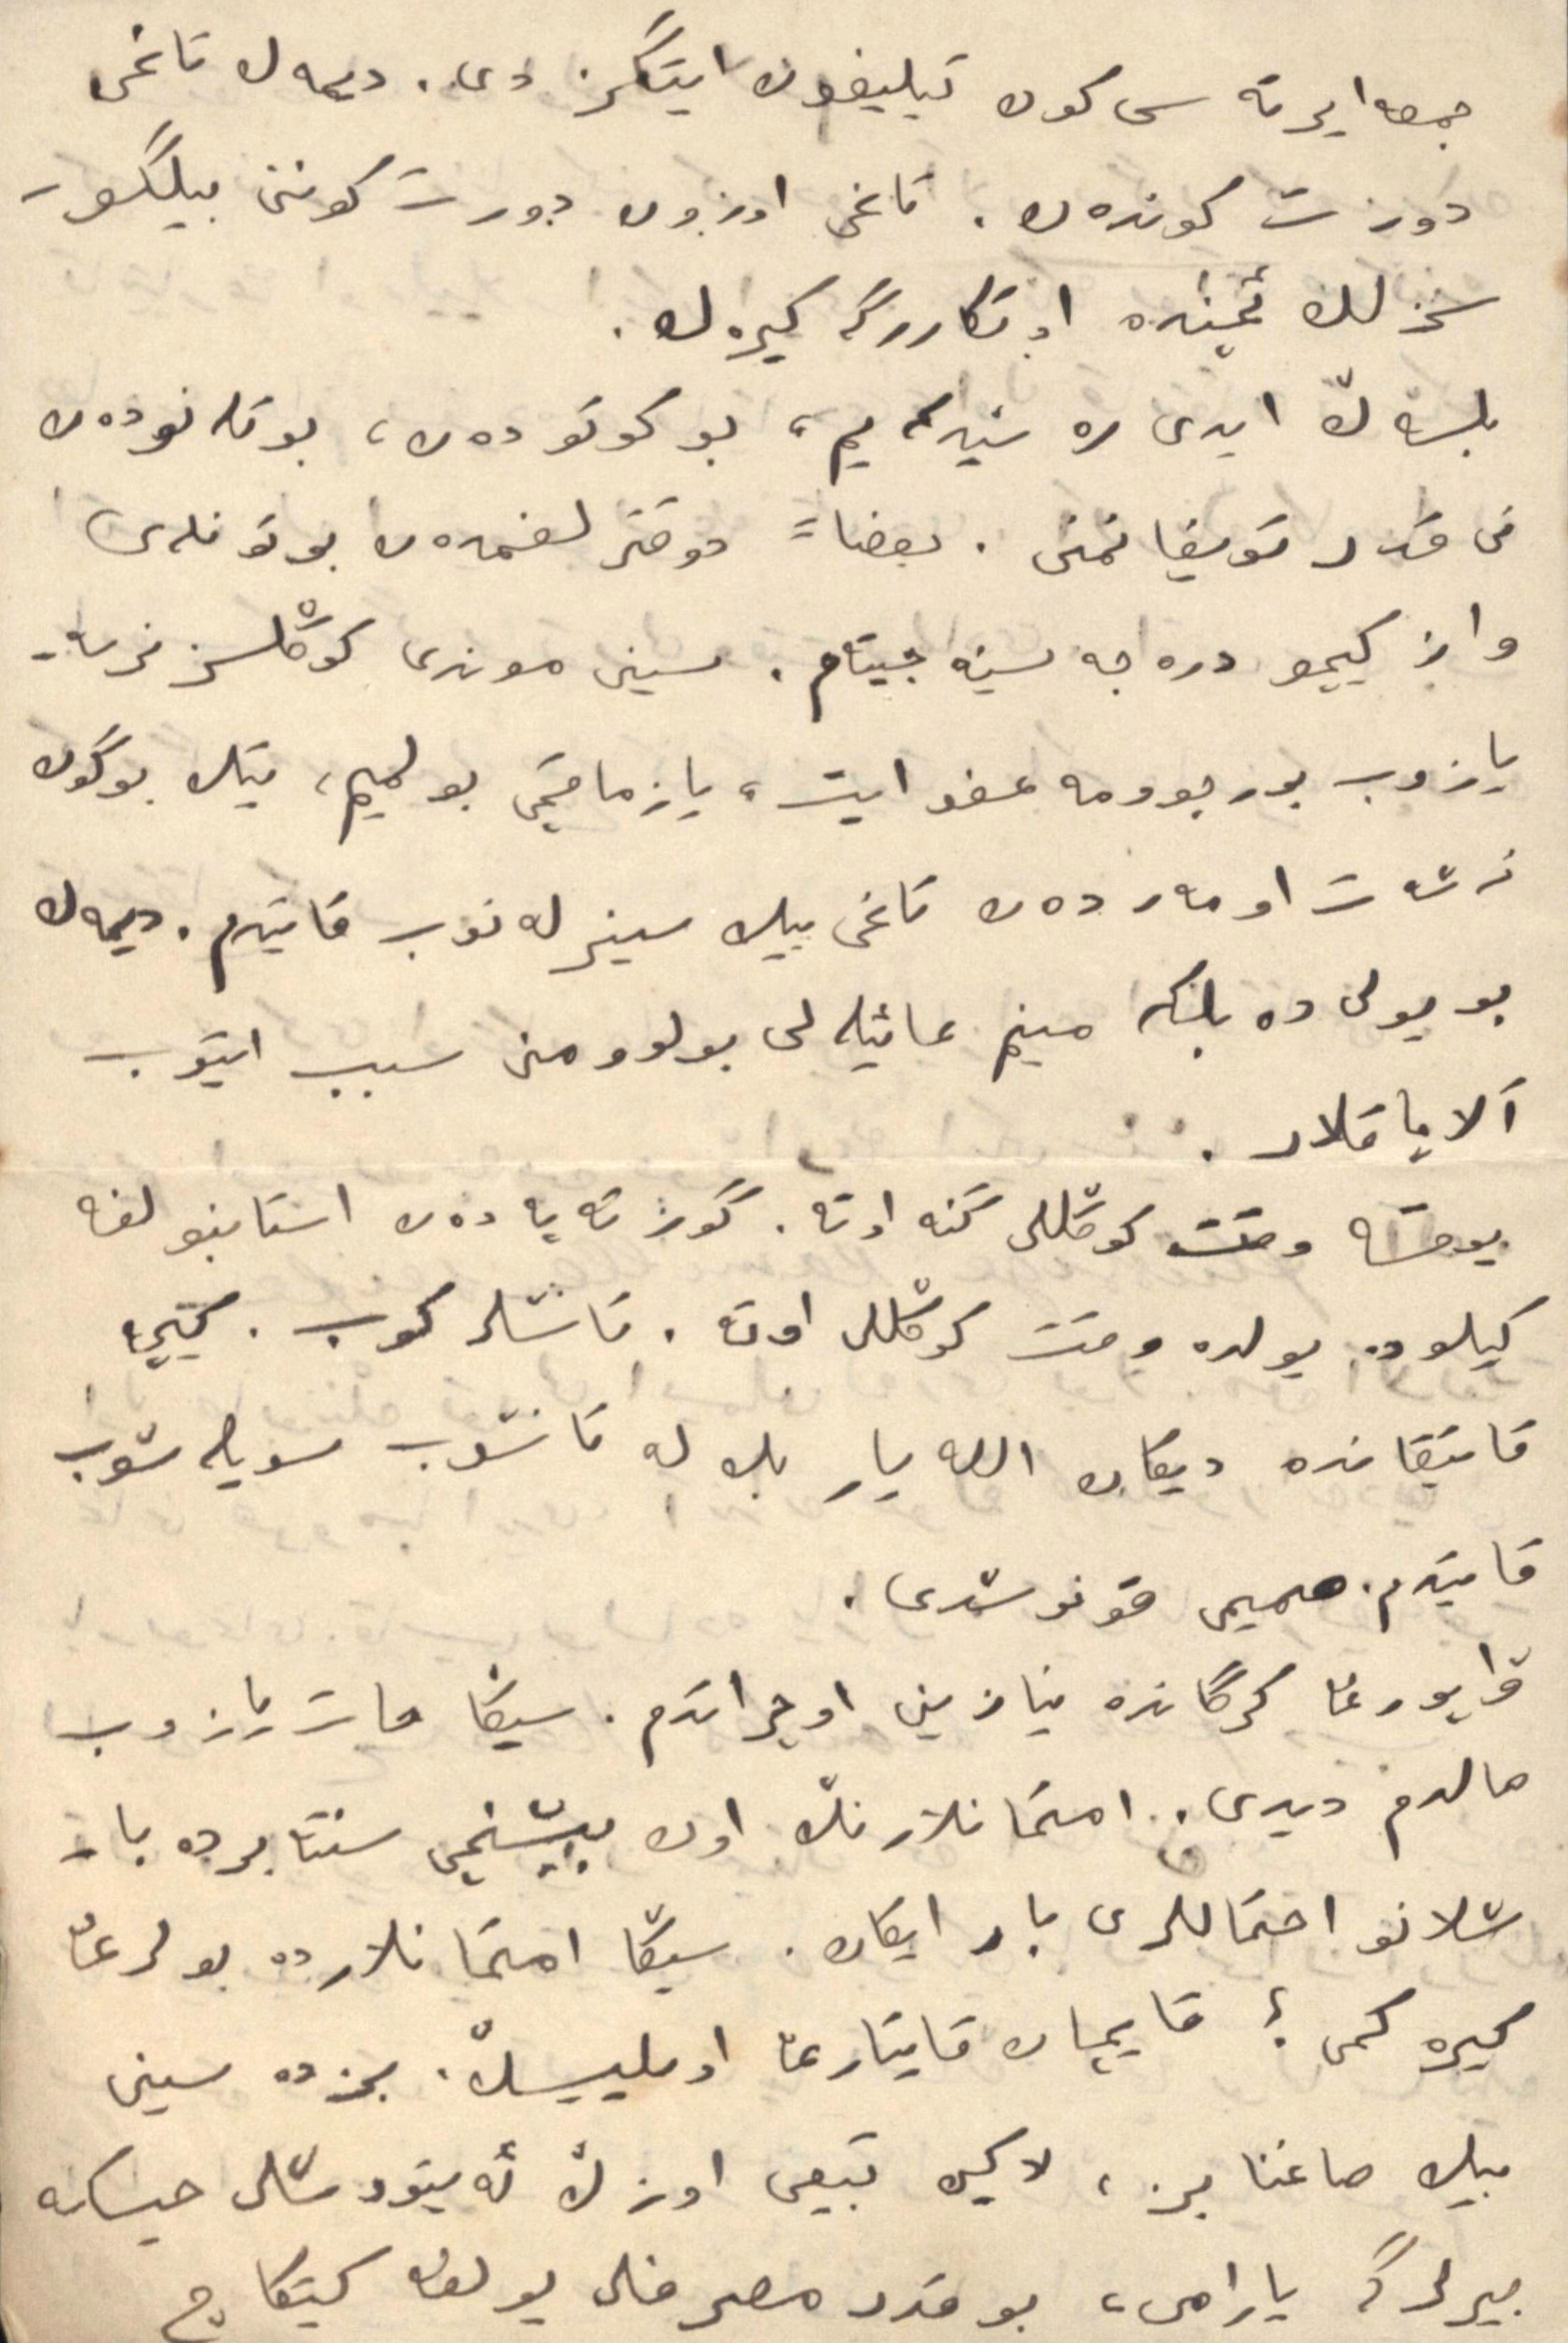 جمعه ایرته سی کون تیلیفون ایتگز دی. دیمه ك تاغی
دورت کونده ن. تاغی اوزون دورت کوننی بیلگو-
سزلك ئچنده اوتکاررگه کیره ك.
بلسه ڭ ایدی ره شیده م، بو کوتوده ن، بو تله نوده ن
نی قدر تویغانمنی. بعضاً دوقتر لغمده ن بو تونله ی
واز کیچو دره جه سینه جیتام. سینی موندی کوڭلسز نرسه-
یازوب بورچوومه عفو ایت، یازماقچی بولمیم، بیك بوگون
نشه ت اومه ر ده ن تاغی بیك سیزله نوب قایتدم. دیمه ك
بو یولی ده بلکه مینم عائیله لی بولوومنی سبب ایتوب
آلایاقلار.
یوقسه وقت کوڭللی گنه اوته. گوز ته په ده ن استانبولغه
کیلوده یولده وقت کوڭللی اوته. تانشلر کوب. کیچه
قایتقانده دیکان الله یار بلله تانشوب سویله شوب
قایتدم. صمیمی قونوشدی.
واپورغا کرگانده نیازینی اوچراتدم. سیڭا خات یازوب
صالدم دیدی. امتحانلارنڭ اون بیشنچی سنتابرده با-
شلانو احتماللری بار ایکان. سیڭا امتحانلارده بولرغا
کیره کمی؟ قایچان قایتارغا اویلیسڭ. بزده سینی
بیك صاغنابز، لاکین تبیعی اوزڭ ئه یتودشلی حیسابکه
بیررگه یارامی، بو قدر مصرفلی یولغا کیتکاچ